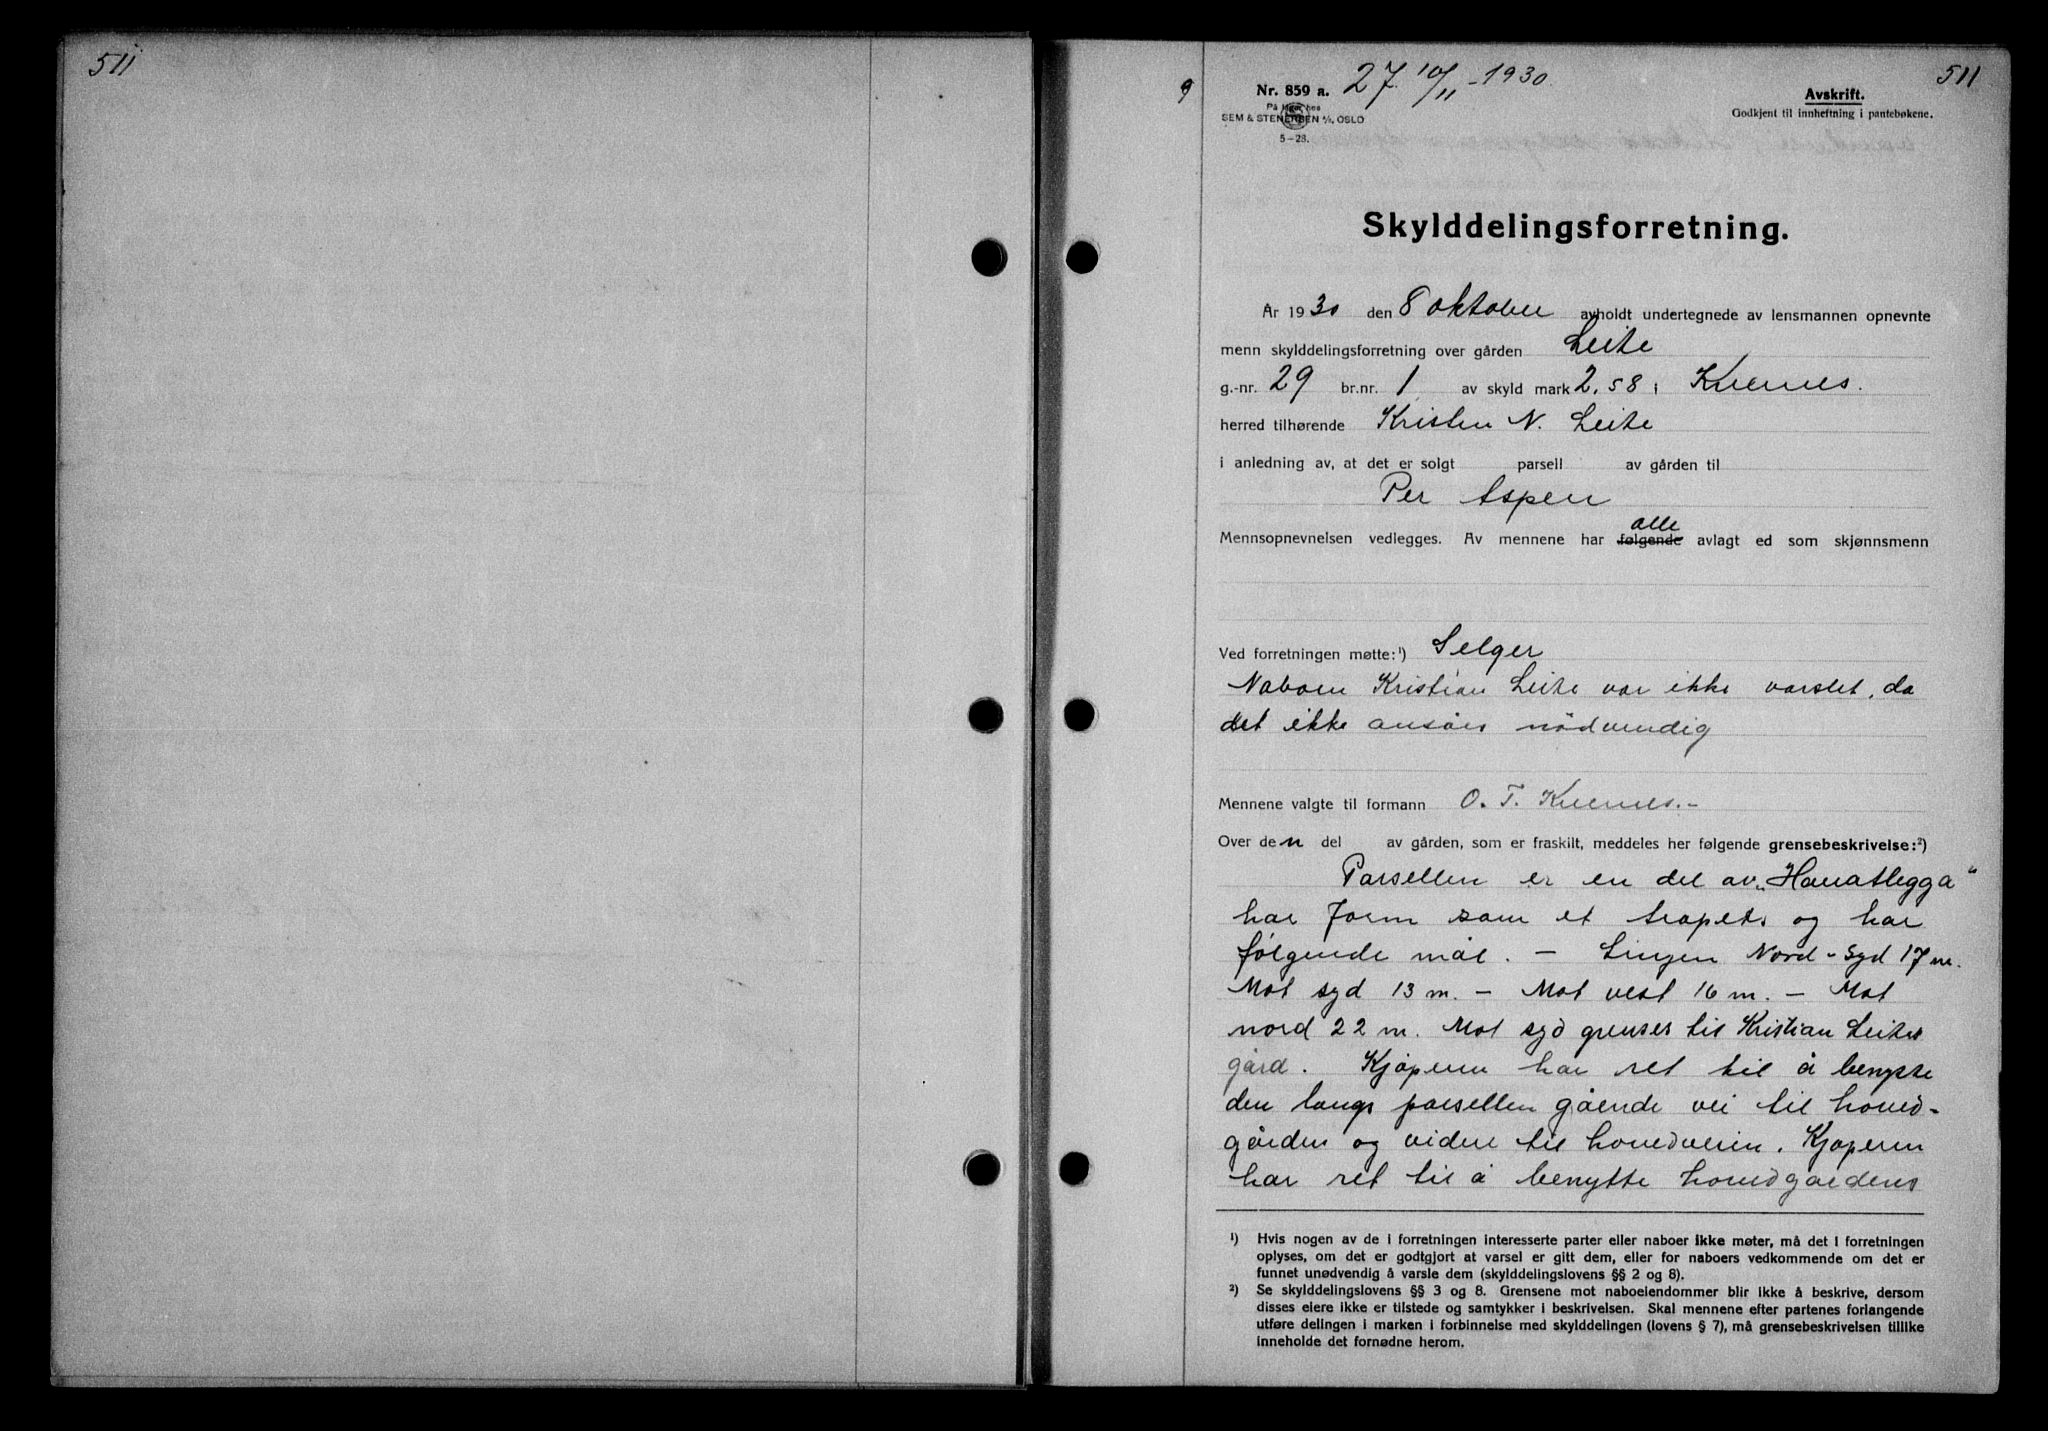 511
9
Nr. 859 a. 27. 10/11 - 1930.
511
På lager hos
SEM & STENERSEN A/S, OSLO
5-28.
Avskrift.
Godkjent til innheftning i pantebøkene.
Skylddelingsforretning.
År 1930 den 8 oktober avholdt undertegnede av lensmannen opnevnte
menn skylddelingsforretning over gården Leite
g.-nr. 29 br.nr. 1 av skyld mark 2,58 i Kvernes.
herred tilhørende Kristen N. Leite
i anledning av, at det er solgt parsell av gården til
Per Aspen
alle
Mennsopnevnelsen vedlegges. Av mennene har følgende avlagt ed som skjønnsmenn
Ved forretningen møtte:¹) Selger
Naboen Kristian Leite var ikke varslet, da
det ikke ansåes nödvendig
Mennene valgte til formann O. T. Kvernes.-
Over den del av gården, som er fraskilt, meddeles her følgende grensebeskrivelse:²)
Parsellen er en del av „Hanatlegga"
har form som et trapets og har
følgende mål. - Linjen Nord-Syd 17 m.
Mot syd 13 m. - Mot vest 16 m. - Mot
nord 22 m. Mot syd grenser til Kristian Leites
gård. Kjøperen har ret til å benytte
den langs parsellen gående vei til hoved-
gården og videre til hovedveien. Kjøperen
har ret til å benytte hovedgårdens
¹) Hvis nogen av de i forretningen interesserte parter eller naboer ikke møter, må det i forretningen
oplyses, om det er godtgjort at varsel er gitt dem, eller for naboers vedkommende om det er
funnet unødvendig å varsle dem (skylddelingslovens §§ 2 og 8).
²) Se skylddelingslovens §§ 3 og 8. Grensene mot naboeiendommer blir ikke å beskrive, dersom
disses eiere ikke er tilstede og samtykker i beskrivelsen. Skal mennene efter partenes forlangende
utføre delingen i marken i forbinnelse med skylddelingen (lovens § 7), må grensebeskrivelsen tillike
inneholde det fornødne herom.